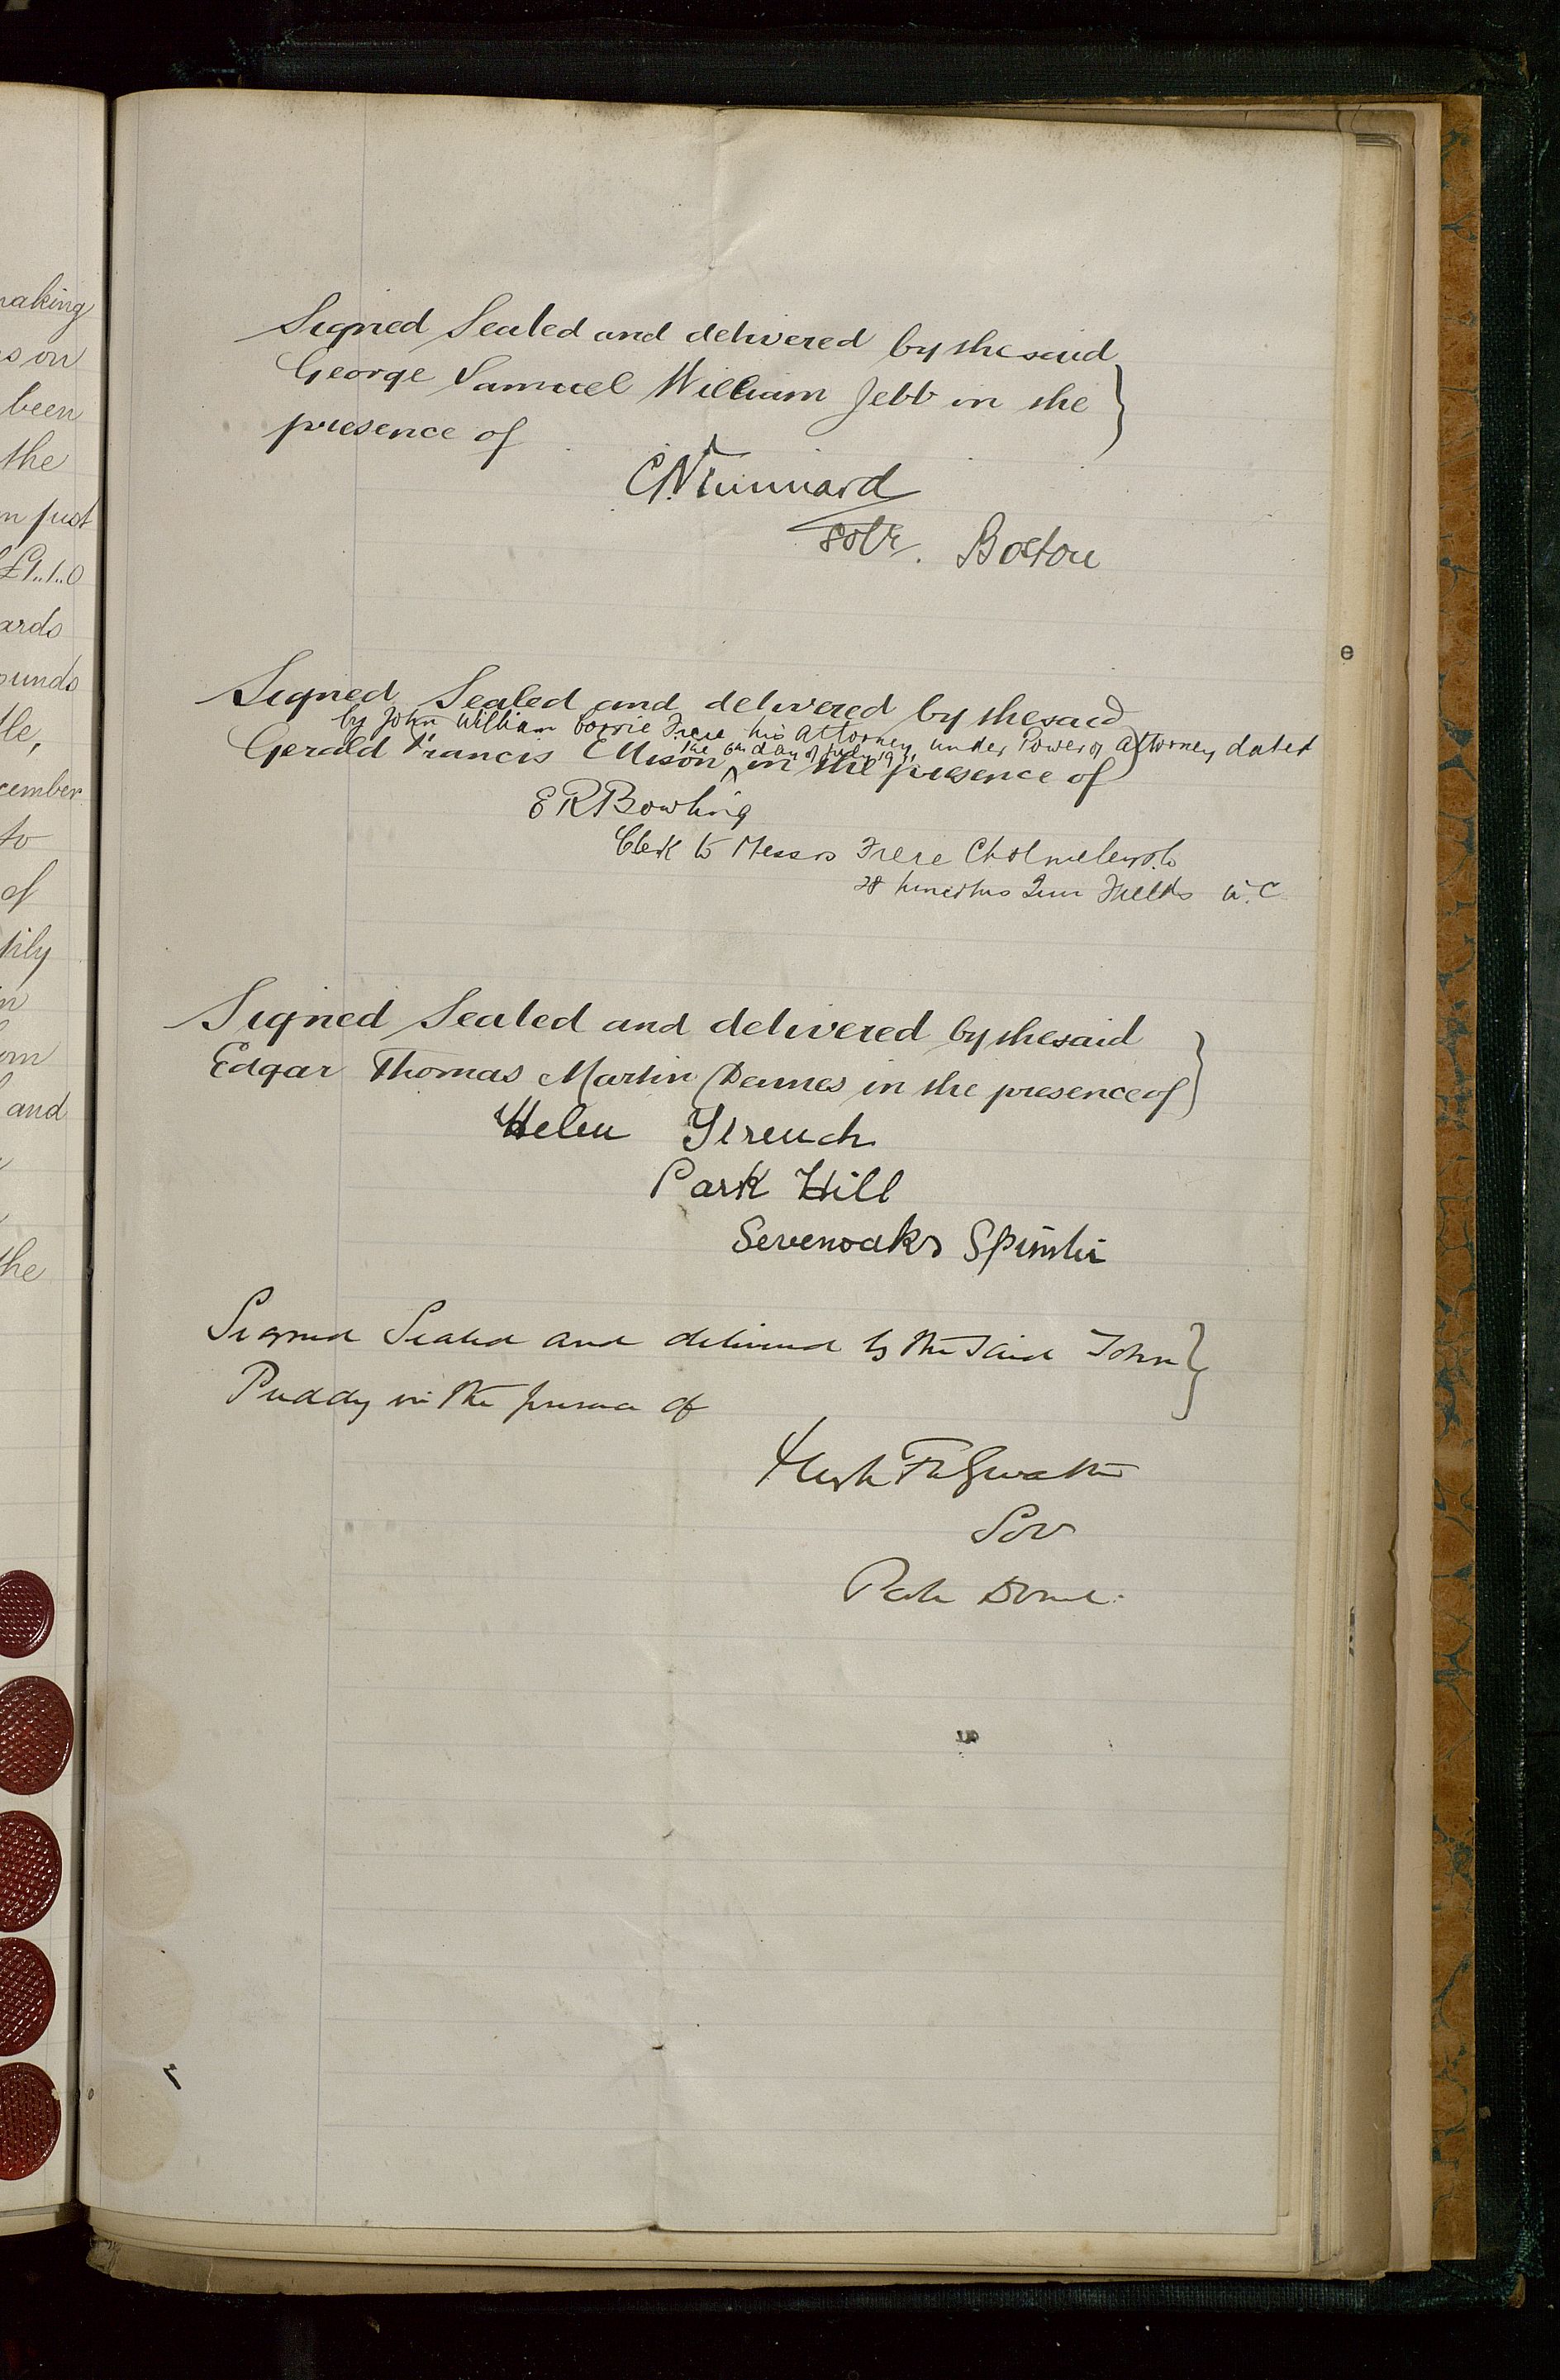 making
s on
been
the
n just
£1..1..0
ards
ounds
tle,
cember
to
of
tily
in
om
and
the
Signed Sealed and delivered by the said
George Samuel William Jebb in the
presence of
C N Tunnard
Solr. Boston
Signed Sealed and delivered by the said
by John William Frere his Attorney under Power of Attorney dated
the 6th day of July
Gerald Francis Ellison in the presence of
E R Bowling
Clerk to Messrs Frere Cholmeley & Co
28 Lincolns Inn Fields W.C
Signed Sealed and delivered by the said
Edgar Thomas Martin Dennes in the presence of
Helen French
Park Hill
Sevenoaks Spinster
Signed Sealed and delivered by the said John
Puddy in the presence of
Hugh
Solr
e